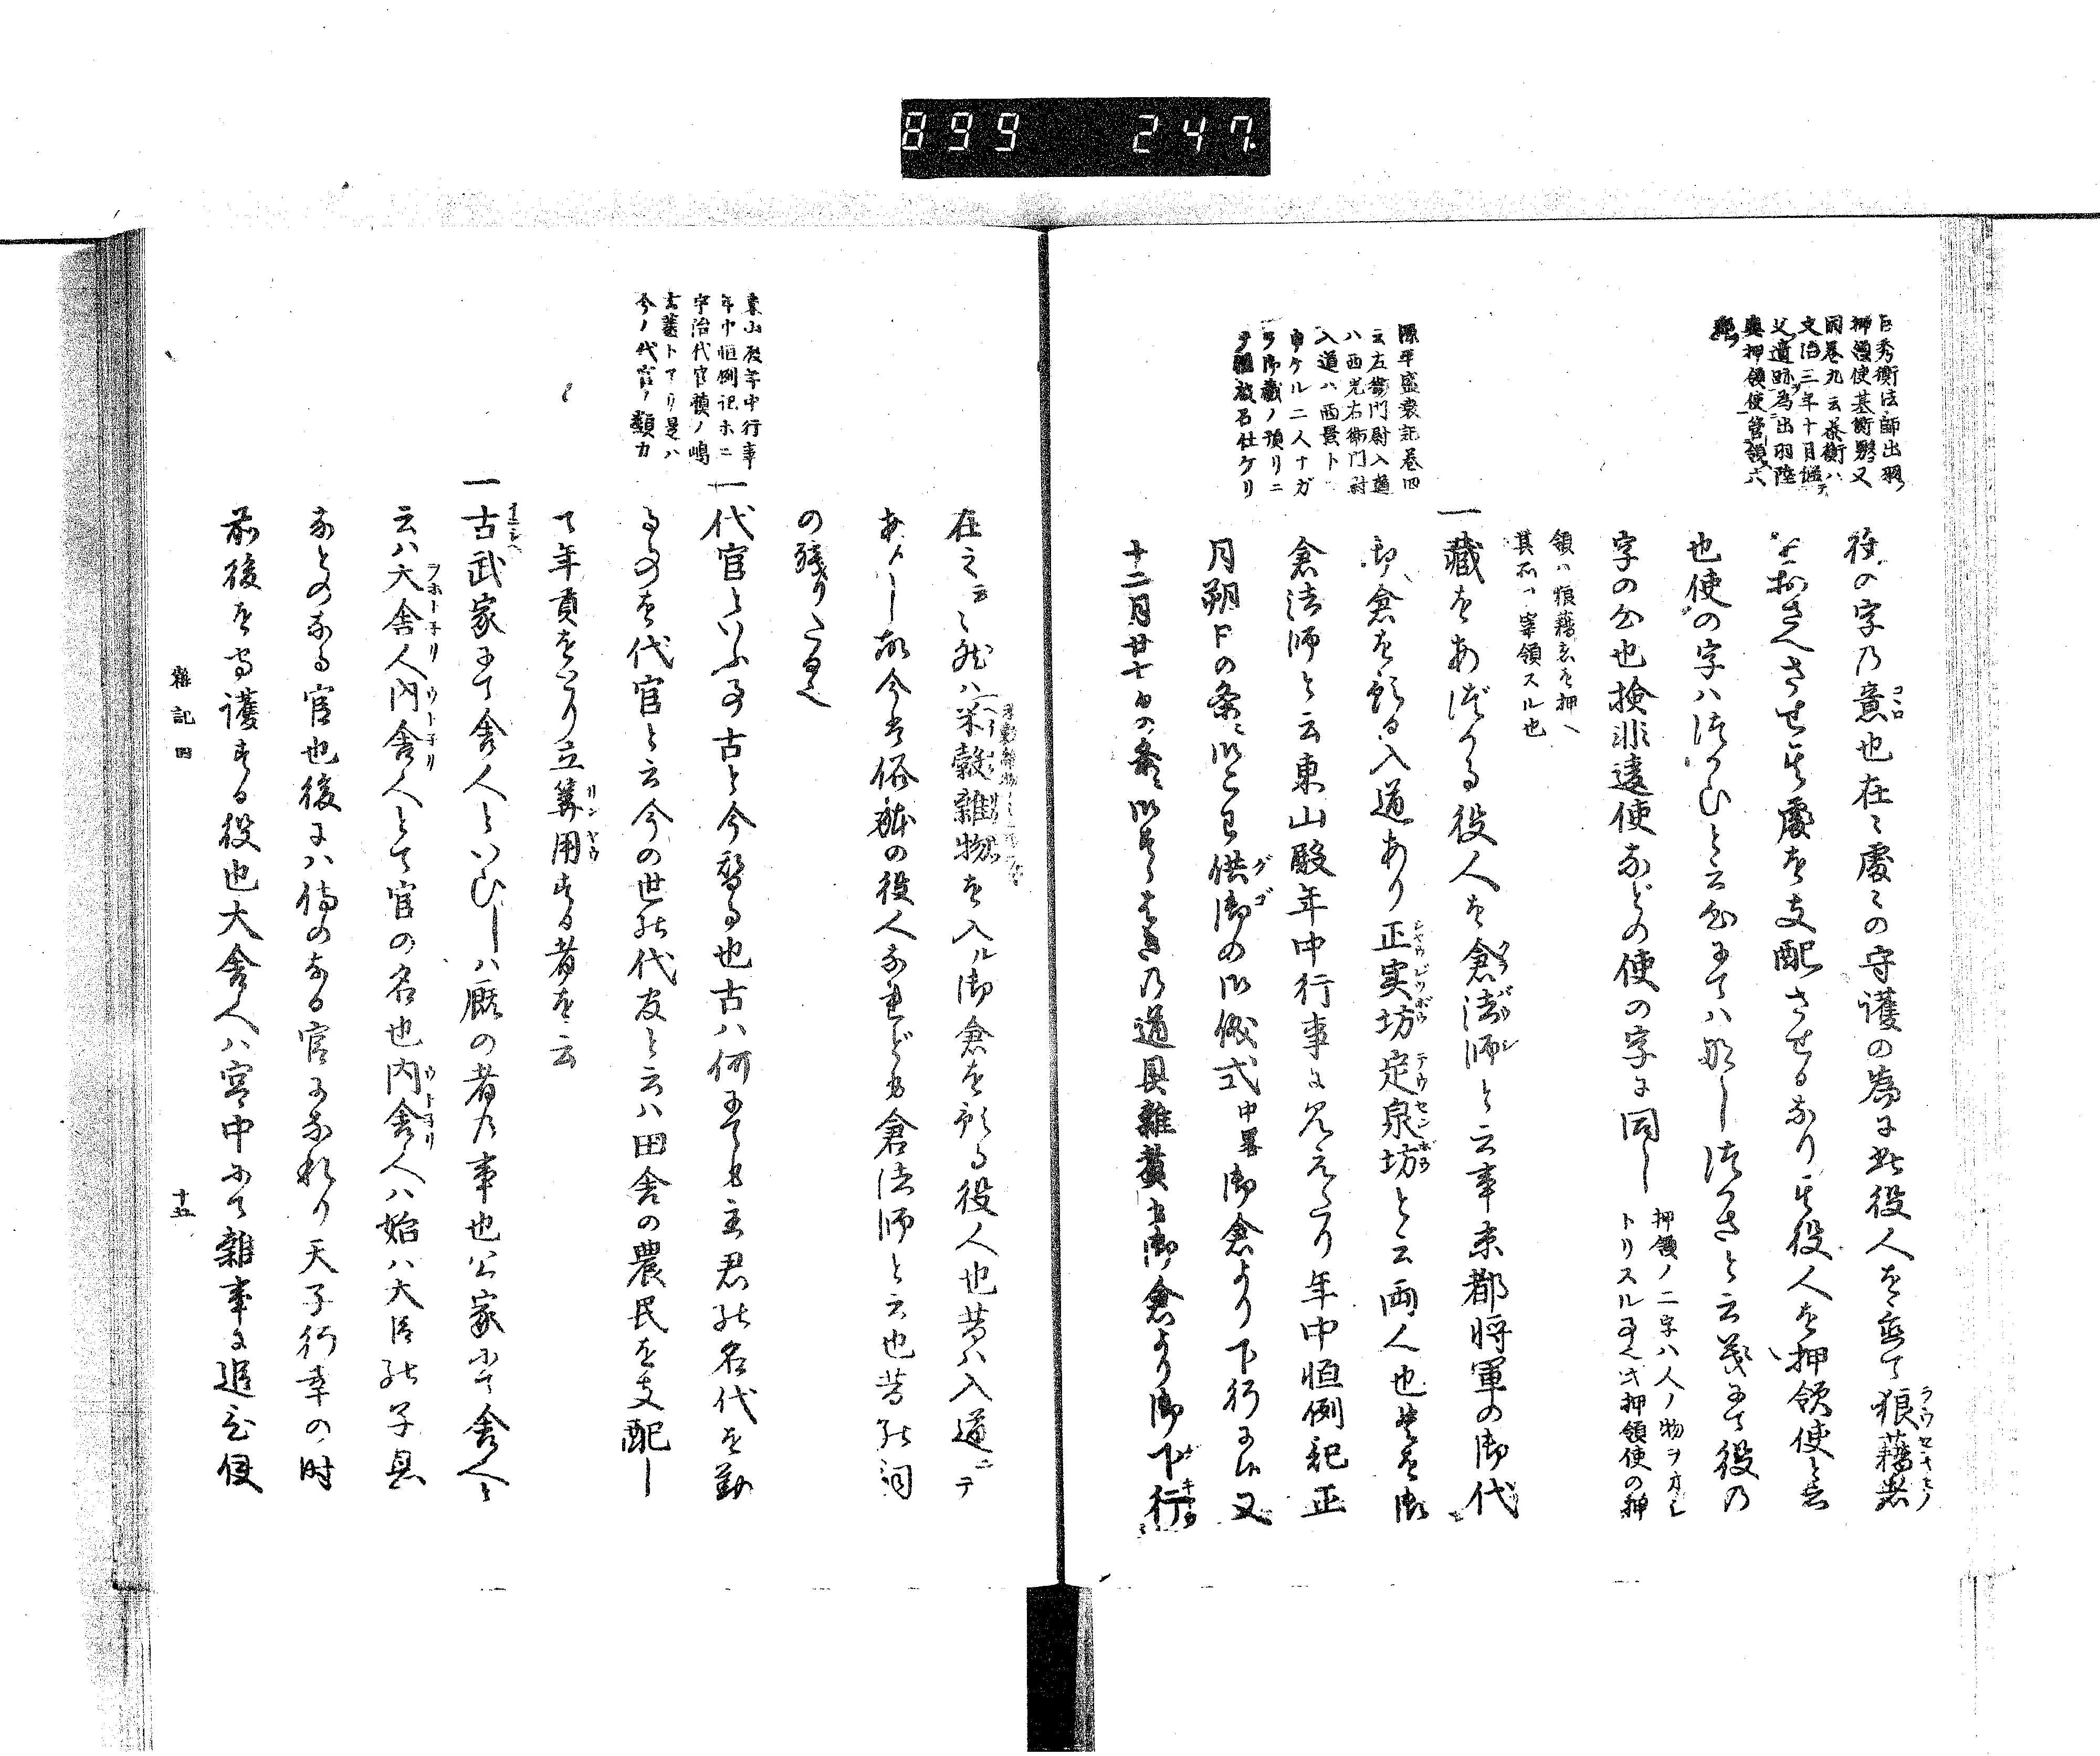 899 247
臣秀衡法師出羽
押領使基衡男又
同巻九云泰衡ハ
文治三年十月継テ
父遺跡為出羽陸
奥押領使管領六
郡
役の字乃意也在々處々の守護の為に此役人を遣て狼藉者
を押さへさせ其處を支配させるなり其役人を押領使と云
也使の字ハ法つかひと云
字の意也検非違使などの使の字に同し
押領ノ二字ハ人ノ物ヲカスレ
トリスル
領ハ狼藉者を押ヘ
其所ヲ宰領スル也
源平盛衰記巻四
云左衛門尉入道
ハ西光右衛門尉
入道ハ西景ト
申ケル二人ナガ
ラ御蔵ノ預リニ
テ召仕ケリ
一藏をあづかる役人を倉法師と云事京都将軍の御代
御倉を預る入道あり正実坊定泉坊と云両人也是を御
倉法師と云東山殿年中行事に見えたり年中恒例記正
月朔日の条ニ供御の御儀式中畧御倉より下行に候又
十二月廿七日の条ニ御すゝはきの道具雜費も御倉より御下行
在之云々然ハ米穀雜物を入ル御倉を預る役人也昔ハ入道ニテ
ありし故今ハ俗躰の役人なれども倉法師と云也昔の詞
の残りたる也
東山殿年中行事
年中恒例記ホニ
宇治代官槙ノ嶋
玄蕃トアリ是ハ
今ノ代官ノ類カ
一代官といふ事古と今替る也古ハ何にても主君の名代を勤
るものを代官と云今の世の代官と云ハ田舎の農民を支配し
て年貢をはかり立算用する者を云
一古武家にて舎人といひしハ厩の者乃事也公家にて舎人と
云ハ大舎人内舎人とて官の名也内舎人ハ始ハ大臣の子息
などのなる官也後にハ侍のなる官になれり天子行幸の時
前後を守護する役也大舎人ハ宮中にて雜事に追ひ使
雜記四
十五